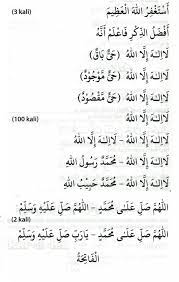 (3 kali) أَسْتَغْفِرُ اللهَ الْعَظِيْمَ
أَفْضَلُ الذِّكْرِ فَاعْلَمْ أَنَّهُ
لَاإِلٰهَ إِلَّا اللهُ (حَيٌّ بَاقٌ)
لَاإِلٰهَ إِلَّا اللهُ (حَيٌّ مَوْجُوْدٌ)
لَاإِلٰهَ إِلَّا اللهُ (حَيٌّ مَقْصُوْدٌ)
(100 kali) لَاإِلٰهَ إِلَّا اللهُ – لَاإِلٰهَ إِلَّا اللهُ
لَاإِلٰهَ إِلَّا اللهُ – مُحَمَّدٌ رَسُوْلُ اللهِ
لَاإِلٰهَ إِلَّا اللهُ – مُحَمَّدٌ حَبِيْبُ اللهِ
اَللّٰهُمَّ صَلِّ عَلَىٰ مُحَمَّدٍ – اَللّٰهُمَّ صَلِّ عَلَيْهِ وَسَلِّمْ
(2 kali)
اَللّٰهُمَّ صَلِّ عَلَىٰ مُحَمَّدٍ – يَارَبِّ صَلِّ عَلَيْهِ وَسَلِّمْ
اَلْفَاتِحَةُ